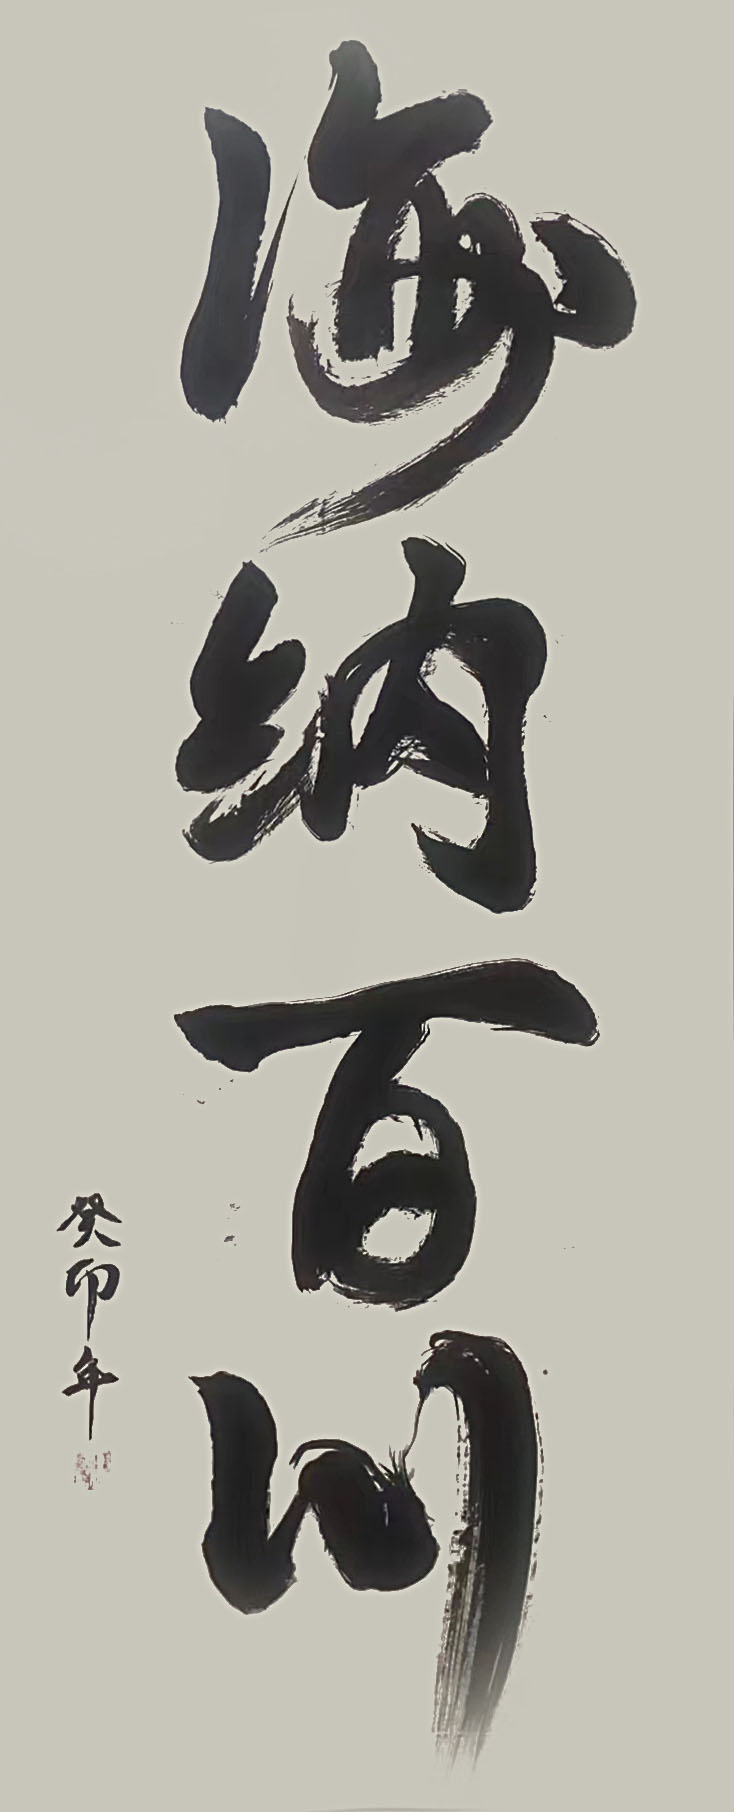 海纳百川
癸卯年